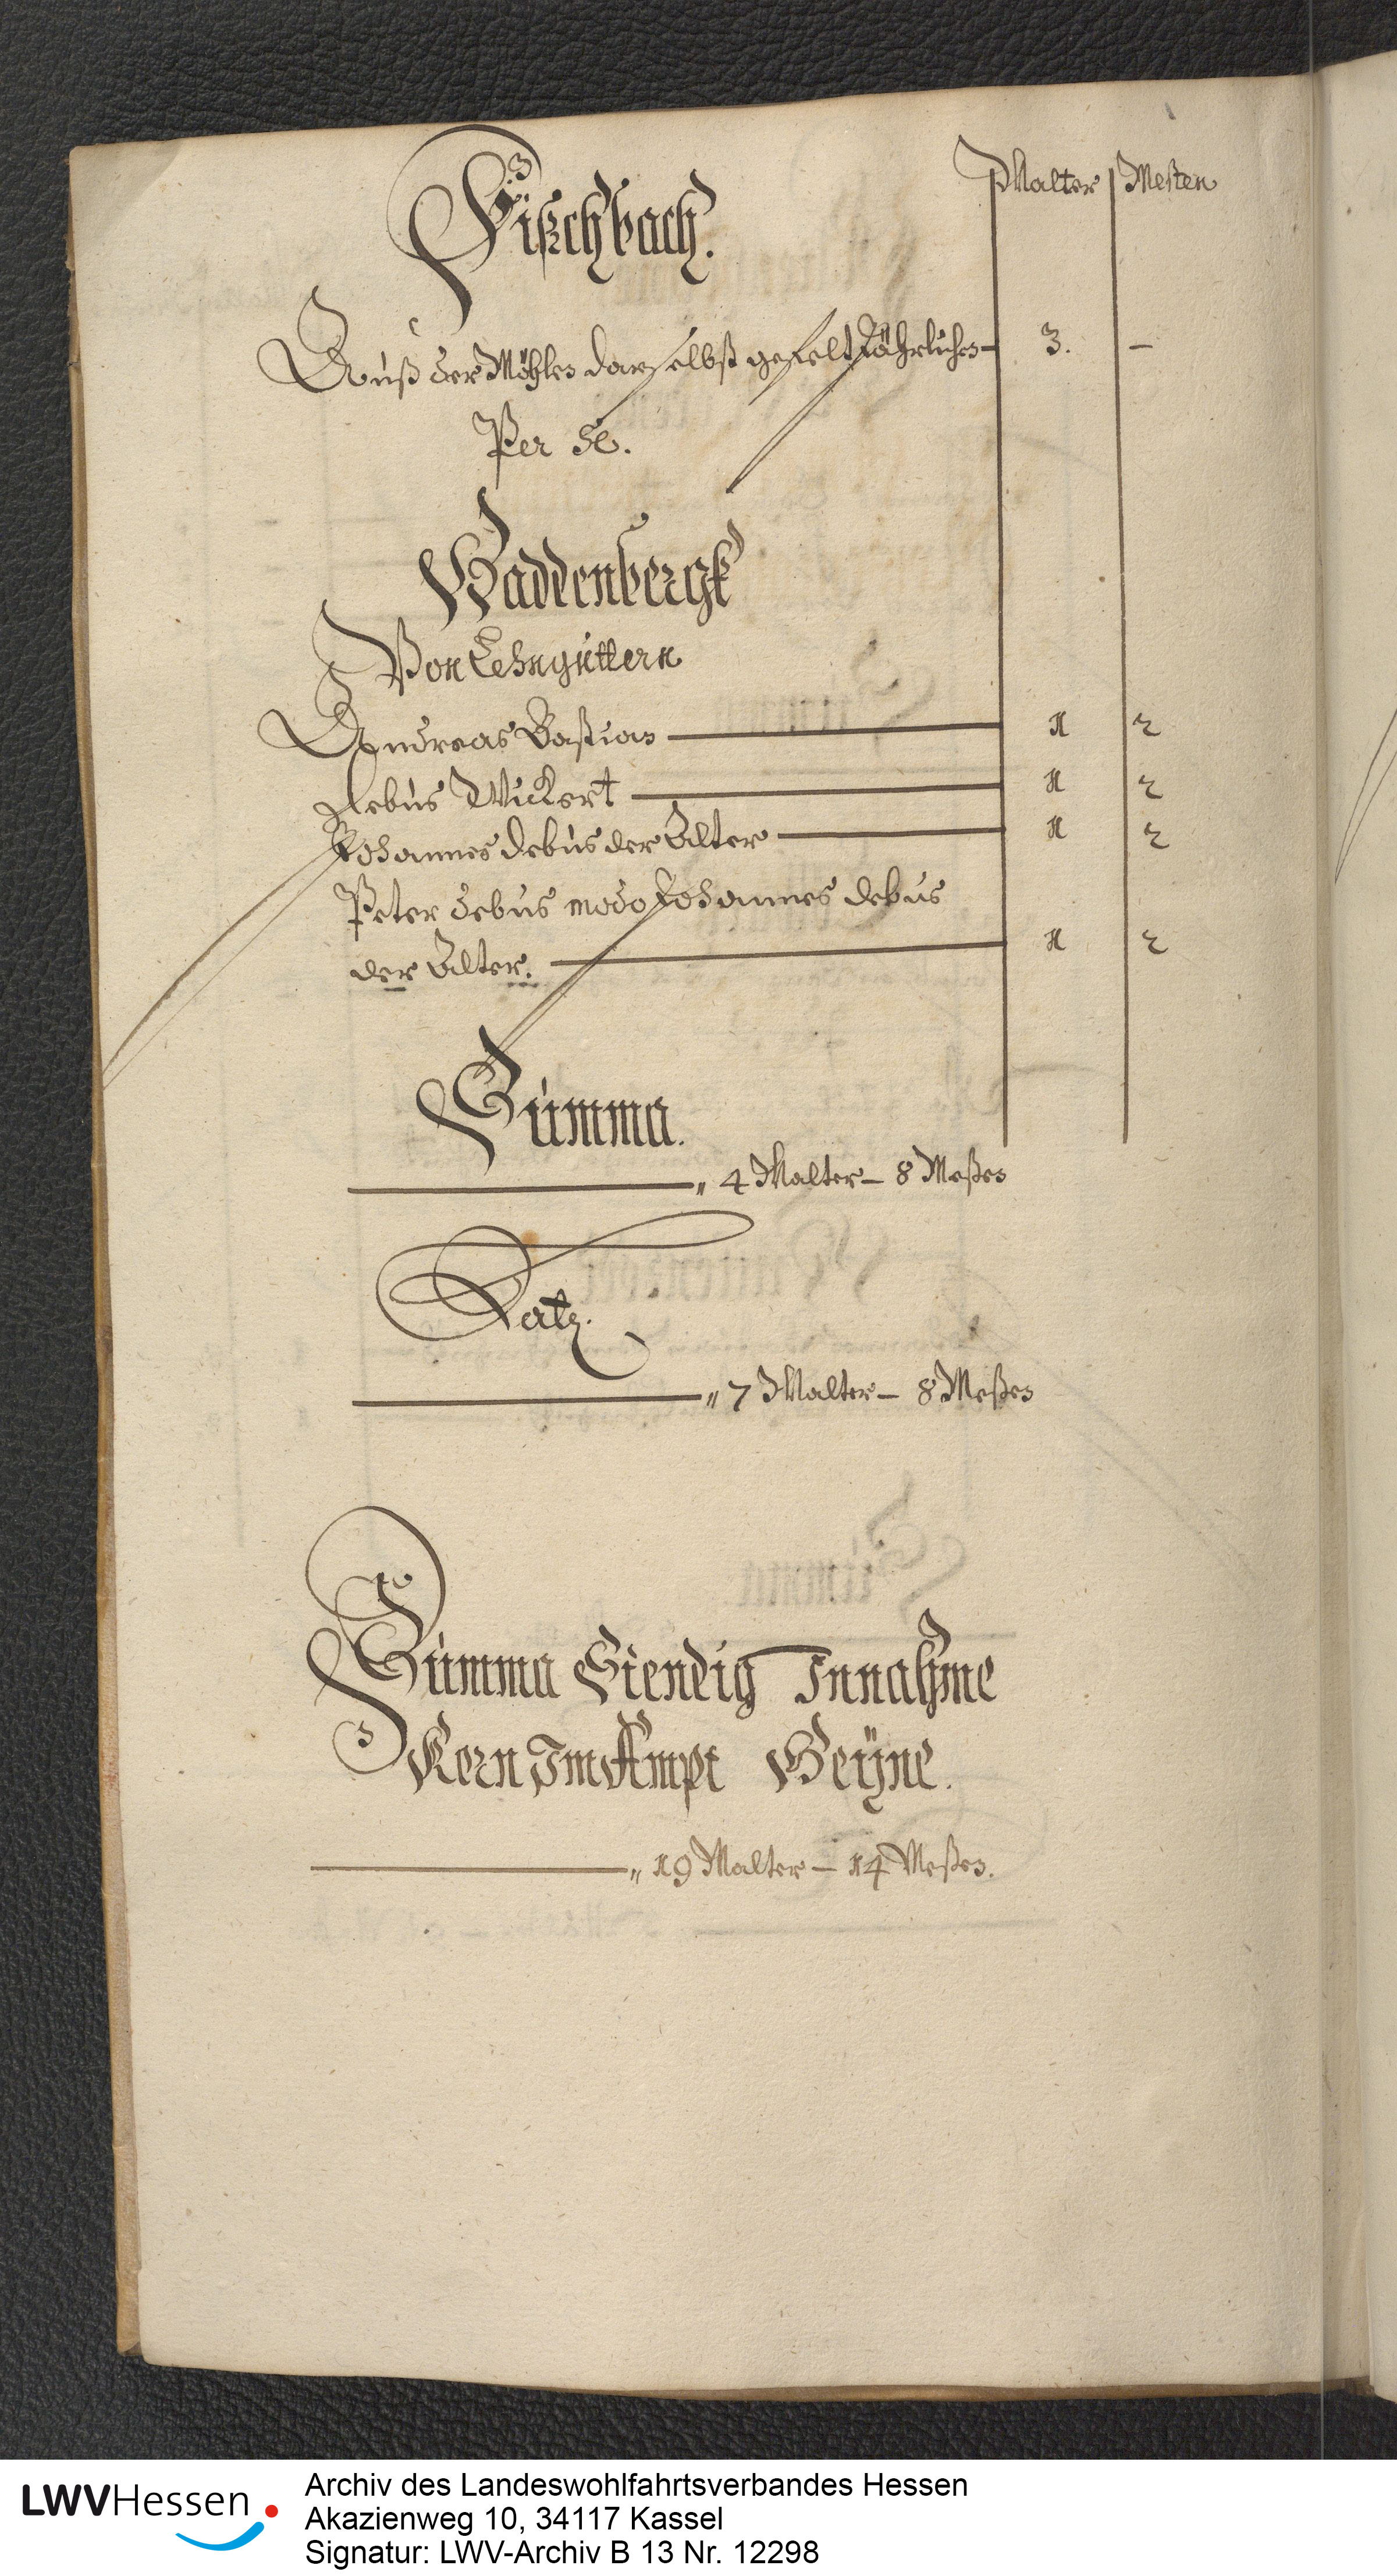 Malter Mesten
Fischbach.
Auß der Möhlen darselbst gefelt Jährlichen 3. –
Per se.
Waddenbergk
Von Lehngüttern
Andreas Bastian 1 2
Debus Wickert 1 2
Johannes Debus der Älter 1 2
Peter Debus modo Johannes Debus
der Älter. 1 2
Summa.
„ 4 Malter – 8 Mesten
Latz.
„ 7 Malter – 8 Mesten
Summa Stendig Innahme
Korn Im Ampt
„ 19 Malter – 14 Mesten.
LWVHessen
Archiv des Landeswohlfahrtsverbandes Hessen
Akazienweg 10, 34117 Kassel
Signatur: LWV-Archiv B 13 Nr. 12298